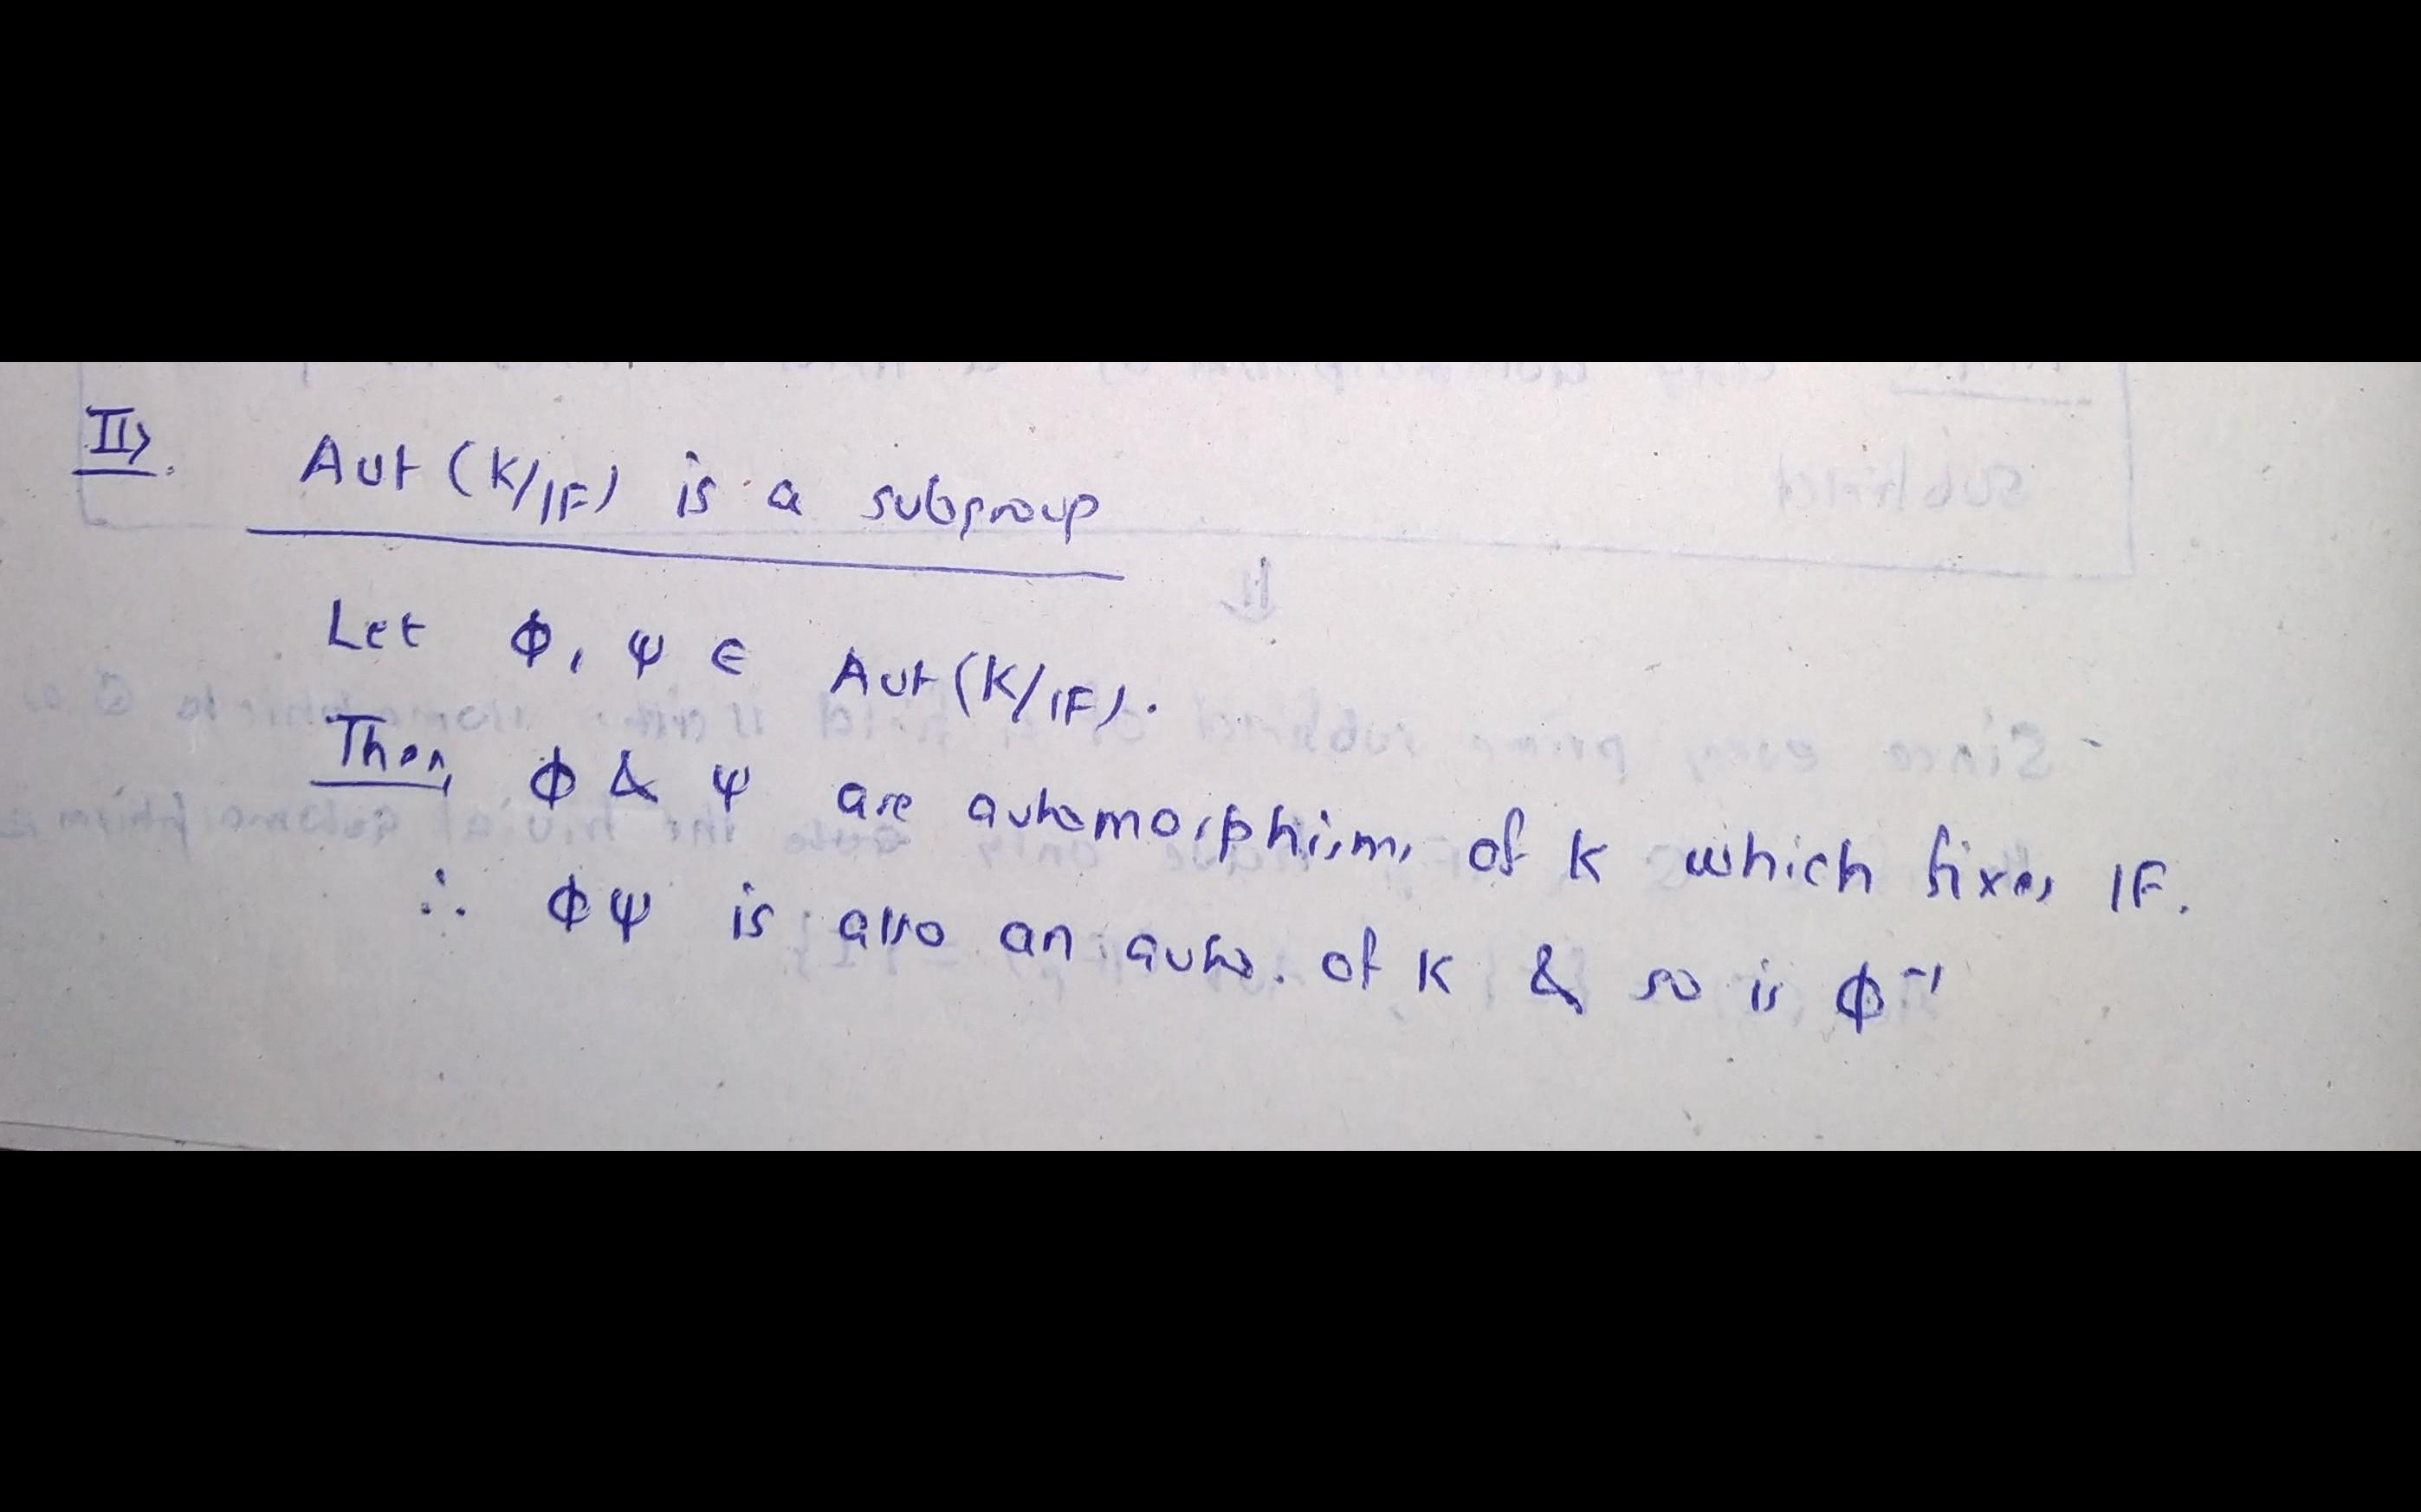 II>. Aut (K/IF) is a subgroup
Let Φ, Ψ ∈ Aut (K/IF).
Then, Φ & Ψ are automorphisms of K which fixes IF.
∴ ΦΨ is also an auto. of K & so is Φ⁻¹